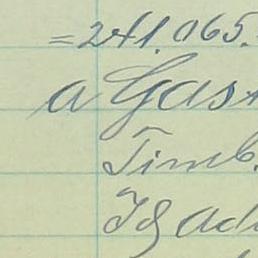 =241.065.
a Gas
Timb.
Id ad